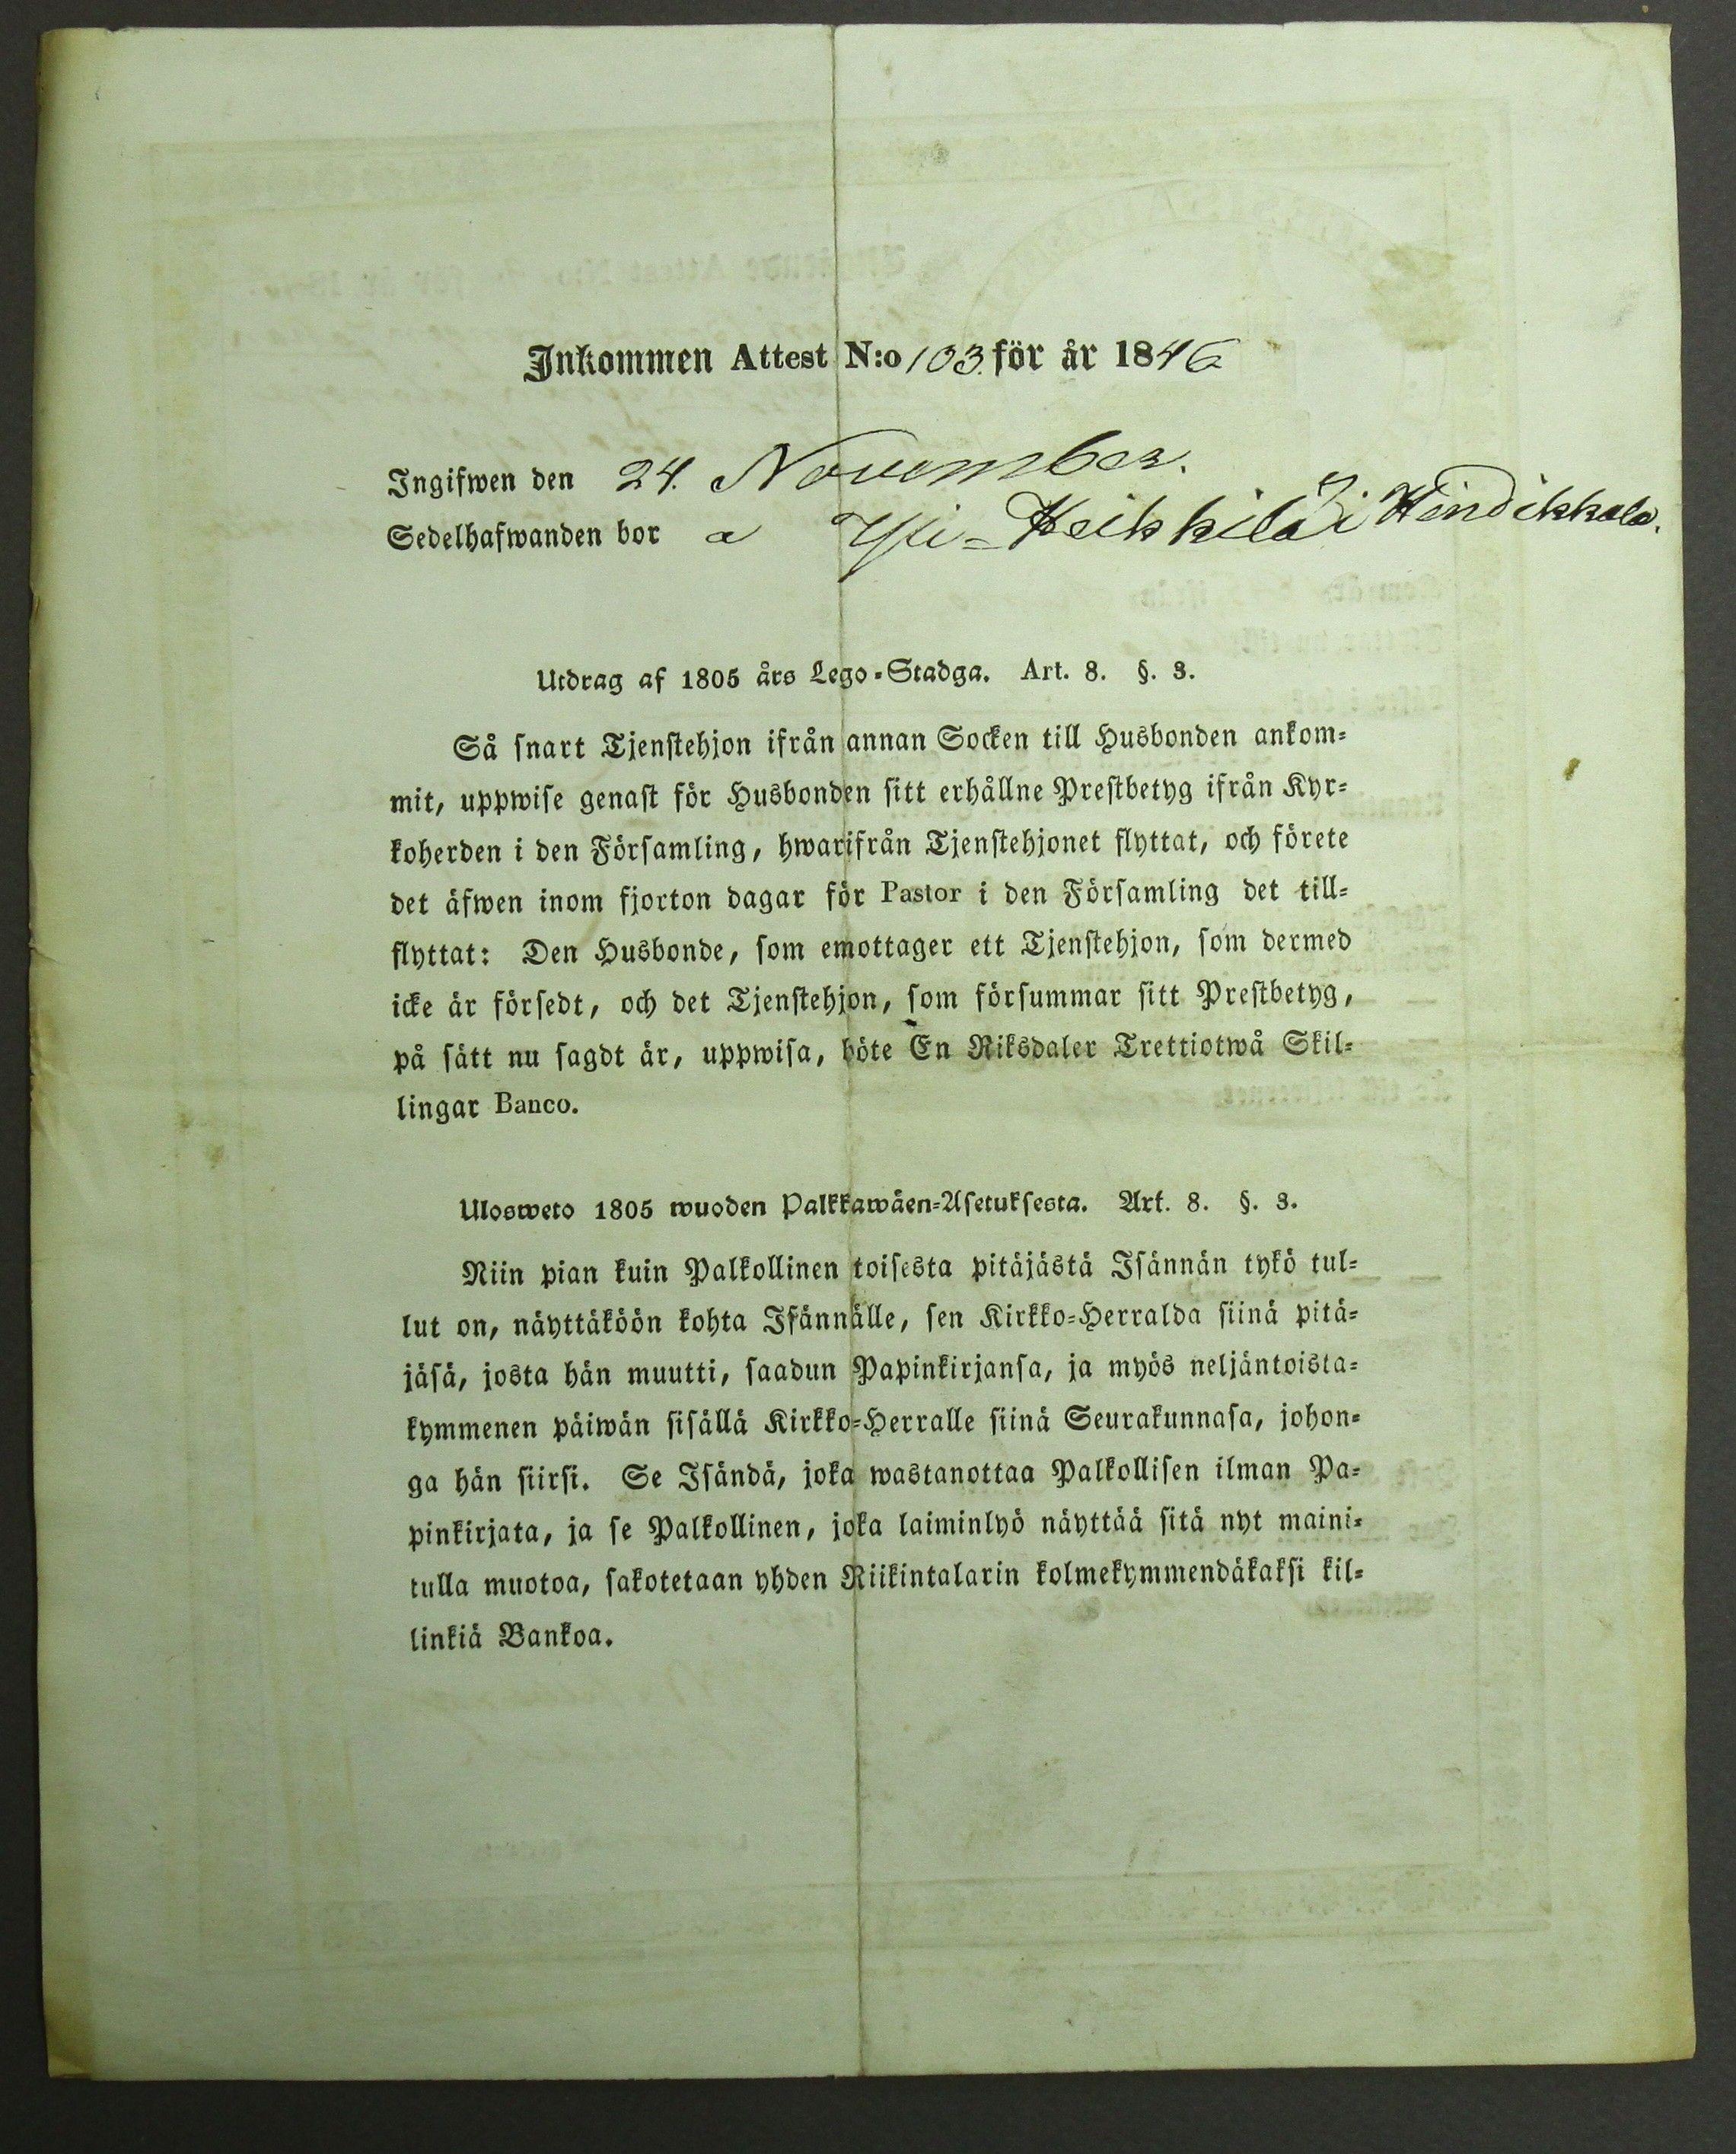 Inkommen Attest N:o 103. för år 1846
Ingifwen den 24. November.
Sedelhafwanden bor a Yli-Heikkilä i Hindikkala.
Utdrag af 1805 års Lego-Stadga. Art. 8. §. 3.
Så snart Tjenstehjon ifrån annan Socken till Husbonden ankom-
mit, uppwise genast för Husbonden sitt erhållne Prestbetyg ifrån Kyr-
koherden i den Församling, hwarifrån Tjenstehjonet flyttat, och förete
det äfwen inom fjorton dagar för Pastor i den Församling det till-
flyttat: Den Husbonde, som emottager ett Tjenstehjon, som dermed
icke är försedt, och det Tjenstehjon, som försummar sitt Prestbetyg,
på sätt nu sagdt är, uppwisa, böte En Riksdaler Trettiotwå Skil-
lingar Banco.
Ulosweto 1805 wuoden Palkkawäen-Asetuksesta. Art. 8. §. 3.
Niin pian kuin Palkollinen toisesta pitäjästä Isännän tykö tul-
lut on, näyttäköön kohta Isännälle, sen Kirkko-Herralda siinä pitä-
jäsä, josta hän muutti, saadun Papinkirjansa, ja myös neljäntoista-
kymmenen päiwän sisällä Kirkko-Herralle siinä Seurakunnasa, johon-
ga hän siirsi. Se Isändä, joka wastanottaa Palkollisen ilman Pa-
pinkirjata, ja se Palkollinen, joka laiminlyö näyttää sitä nyt maini-
tulla muotoa, sakotetaan yhden Riikintalarin kolmekymmendäkaksi kil-
linkiä Bankoa.